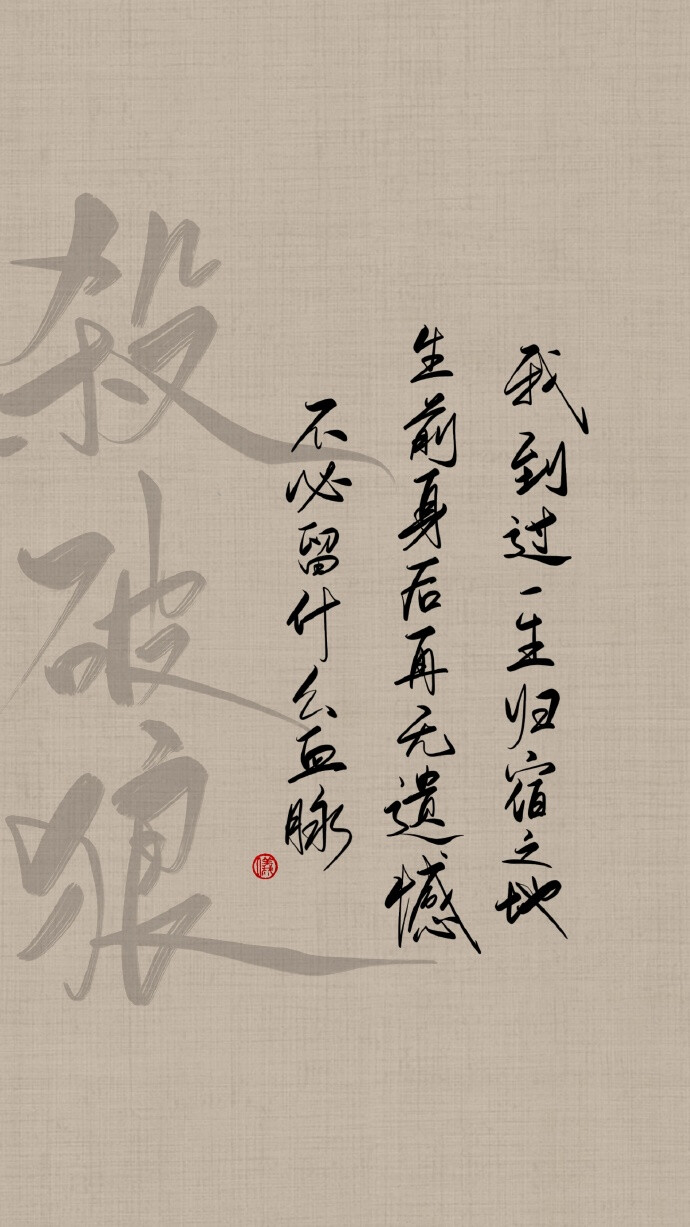 我到过一生归宿之地
生前身后再无遗憾
不必留什么血脉
殺破狼